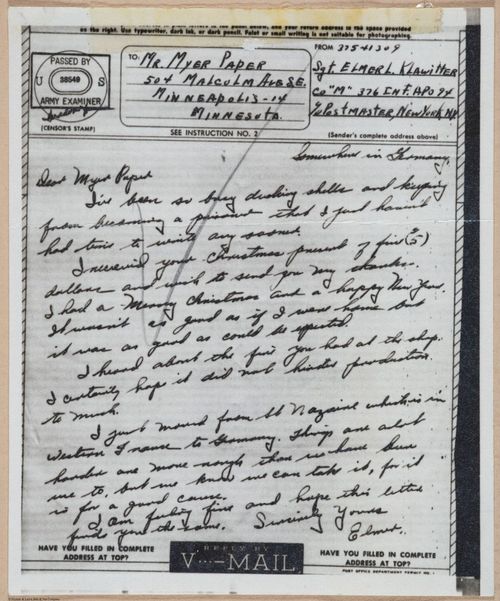 on the right. Use typewriter, dark ink, or dark pencil. Faint or small writing is not suitable for photographing.
PASSED BY
U S
38549
ARMY EXAMINER
(CENSOR'S STAMP)
TO:
Mr. Myer Paper
504 Malcolm Ave S.E.
Minneapolis - 14
Minnesota.
SEE INSTRUCTION NO. 2
FROM 37541309
Sgt. Elmer L. Klawitter
Co "M" 376 Inf. APO 94
% Postmaster, New York, NY
(Sender's complete address above)
Somewhere in Germany.
Dear Myer Paper
I've been so busy ducking shells and keeping
from becoming a prisoner that I just haven't
had time to write any sooner.
I received your Christmas present of five (5)
dollars and wish to send you my thanks.
I had a Merry Christmas and a happy New Year.
It wasn't as good as if I were home but
it was as good as could be expected.
I heard about the fire you had at the shop.
I certainly hope it did not hinder production
to much.
I just moved from St Nazaire which is in
western France to Germany. Things are alot
harder and more rough than we have been
use to, but we know we can take it, for it
is for a good cause.
I am feeling fine and hope this letter
finds you the same.
Sincerely Yours
Elmer.
HAVE YOU FILLED IN COMPLETE
ADDRESS AT TOP?
REPLY BY
V···-MAIL
HAVE YOU FILLED IN COMPLETE
ADDRESS AT TOP?
POST OFFICE DEPARTMENT PERMIT NO. 1